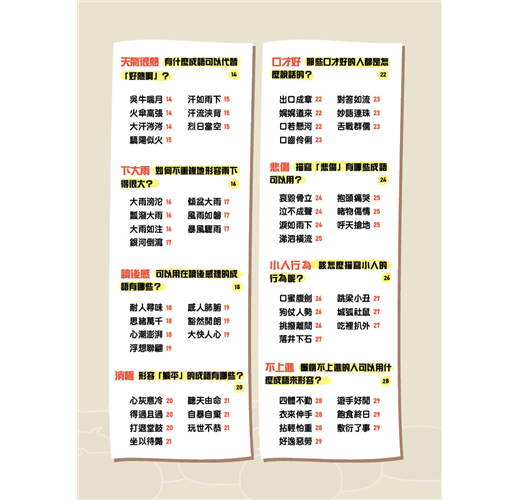 天氣很熱 有什麼成語可以代替
「好熱啊」？ 14
吳牛喘月 14 汗如雨下 15
火傘高張 14 汗流浹背 15
大汗涔涔 14 烈日當空 15
驕陽似火 15
下大雨 如何不重複地形容雨下
得很大？ 16
大雨滂沱 16 傾盆大雨 17
瓢潑大雨 16 風雨如磐 17
大雨如注 16 暴風驟雨 17
銀河倒瀉 17
讀後感 可以用在讀後感裡的成
語有哪些？ 18
耐人尋味 18 感人肺腑 19
思緒萬千 18 豁然開朗 19
心潮澎湃 18 大快人心 19
浮想聯翩 19
消極 形容「躺平」的成語有哪些？
20
心灰意冷 20 聽天由命 21
得過且過 20 自暴自棄 21
打退堂鼓 20 玩世不恭 21
坐以待斃 21
口才好 那些口才好的人都是怎
麼說話的？ 22
出口成章 22 對答如流 23
娓娓道來 22 妙語連珠 23
口若懸河 22 舌戰群儒 23
口齒伶俐 23
悲傷 描寫「悲傷」有哪些成語
可以用？ 24
哀毀骨立 24 抱頭痛哭 25
泣不成聲 24 睹物傷情 25
淚如雨下 24 呼天搶地 25
涕泗橫流 25
小人行為 該怎麼描寫小人的
行為呢？ 26
口蜜腹劍 26 跳梁小丑 27
狗仗人勢 26 城狐社鼠 27
挑撥離間 26 吃裡扒外 27
落井下石 27
不上進 懶惰不上進的人可以用什
麼成語來形容？ 28
四體不勤 28 遊手好閒 29
衣來伸手 28 飽食終日 29
拈輕怕重 28 敷衍了事 29
好逸惡勞 29